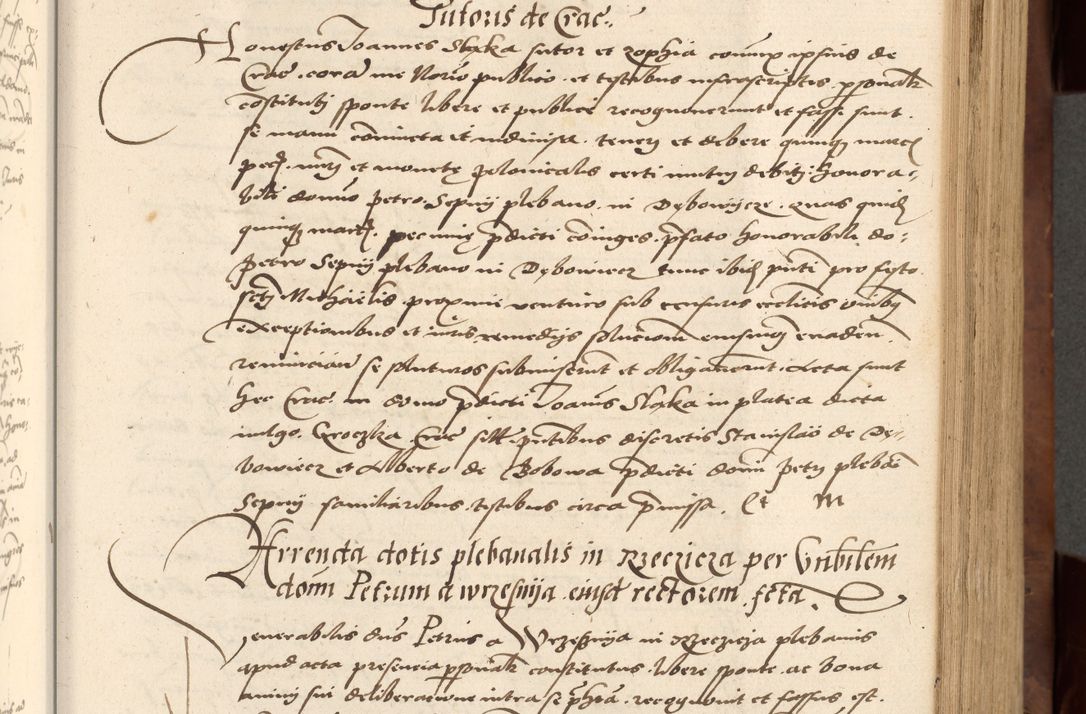 Sutoris de Crac.
Honestus Joannes Slapka sutor et Zophia coniunx ipsius de
Crac. cora me Norio publico et testibus infrascriptis psonalr
costituti sponte libere et publice recognouerunt et fassi sunt
se manu coniuncta et indiuisa teneri et debere quinq marc
pec. et monete polonicalis certi mutui debiti honora-
bili domino Petro Sepnij plebano in Dębowijecz quas quid
quinq marc. pecunie pdicti coniuges pfato honorabili do:
Petro Sepnij plebano in Dębowiecz tunc ibid pnti pro festo
Scti Michaelis proxime venturo sub censuris ecclicis oibus
exceptionibus et iuris remedijs solucionem eiusmodi euaden.
renuncian se soluturos submiserunt et obligauerunt. Acta sunt
hec Crac. in domo pdicti Joanis Slapka in platea dicta
vulgo Groczka Crac sitt. pntibus discretis Stanislao de Dę-
bowiecz et Alberto de Bobowa pdicti domini Petri plebani
Sepnij familiaribus testibus circa pmissa. Et m
Arrenda dotis plebanalis in Rzeczicza per Vnbilem
dom Petrum a Wrzesnija eiusd rectorem fcta.
Venerabilis dns Petrus a Wrzesnija in Rzeczicza plebanus
apud acta presencia psonalr constitutus libere sponte ac bona
animi sui deliberacione intra se phia recognouit et fassus est